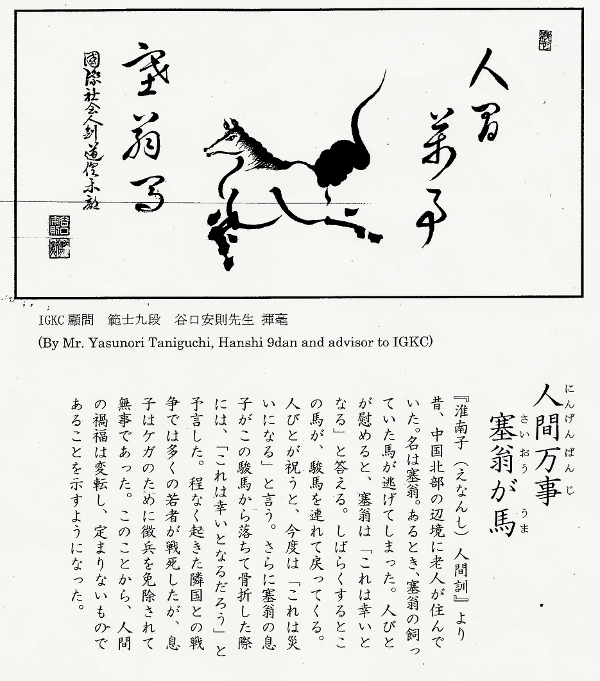 人間
萬事
塞翁馬
國際社会人剣道
IGKC 顧問　範士九段　谷口安則先生 揮毫
(By Mr. Yasunori Taniguchi, Hanshi 9dan and advisor to IGKC)
にんげんばんじ
人間万事
さいおう うま
塞翁が馬
『淮南子（えなんし）人間訓』より
昔、中国北部の辺境に老人が住んで
いた。名は塞翁。あるとき、塞翁の飼っ
ていた馬が逃げてしまった。人びと
が慰めると、塞翁は「これは幸いと
なる」と答える。しばらくするとこ
の馬が、駿馬を連れて戻ってくる。
人びとが祝うと、今度は「これは災
いになる」と言う。さらに塞翁の息
子がこの駿馬から落ちて骨折した際
には、「これは幸いとなるだろう」と
予言した。程なく起きた隣国との戦
争では多くの若者が戦死したが、息
子はケガのために徴兵を免除されて
無事であった。このことから、人間
の禍福は変転し、定まりないもので
あることを示すようになった。